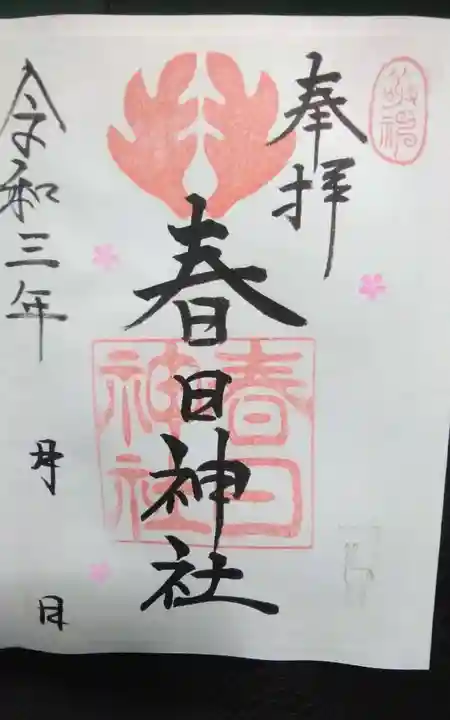 敬神
奉拝
春日神社
春日
神社
令和三年
月
日